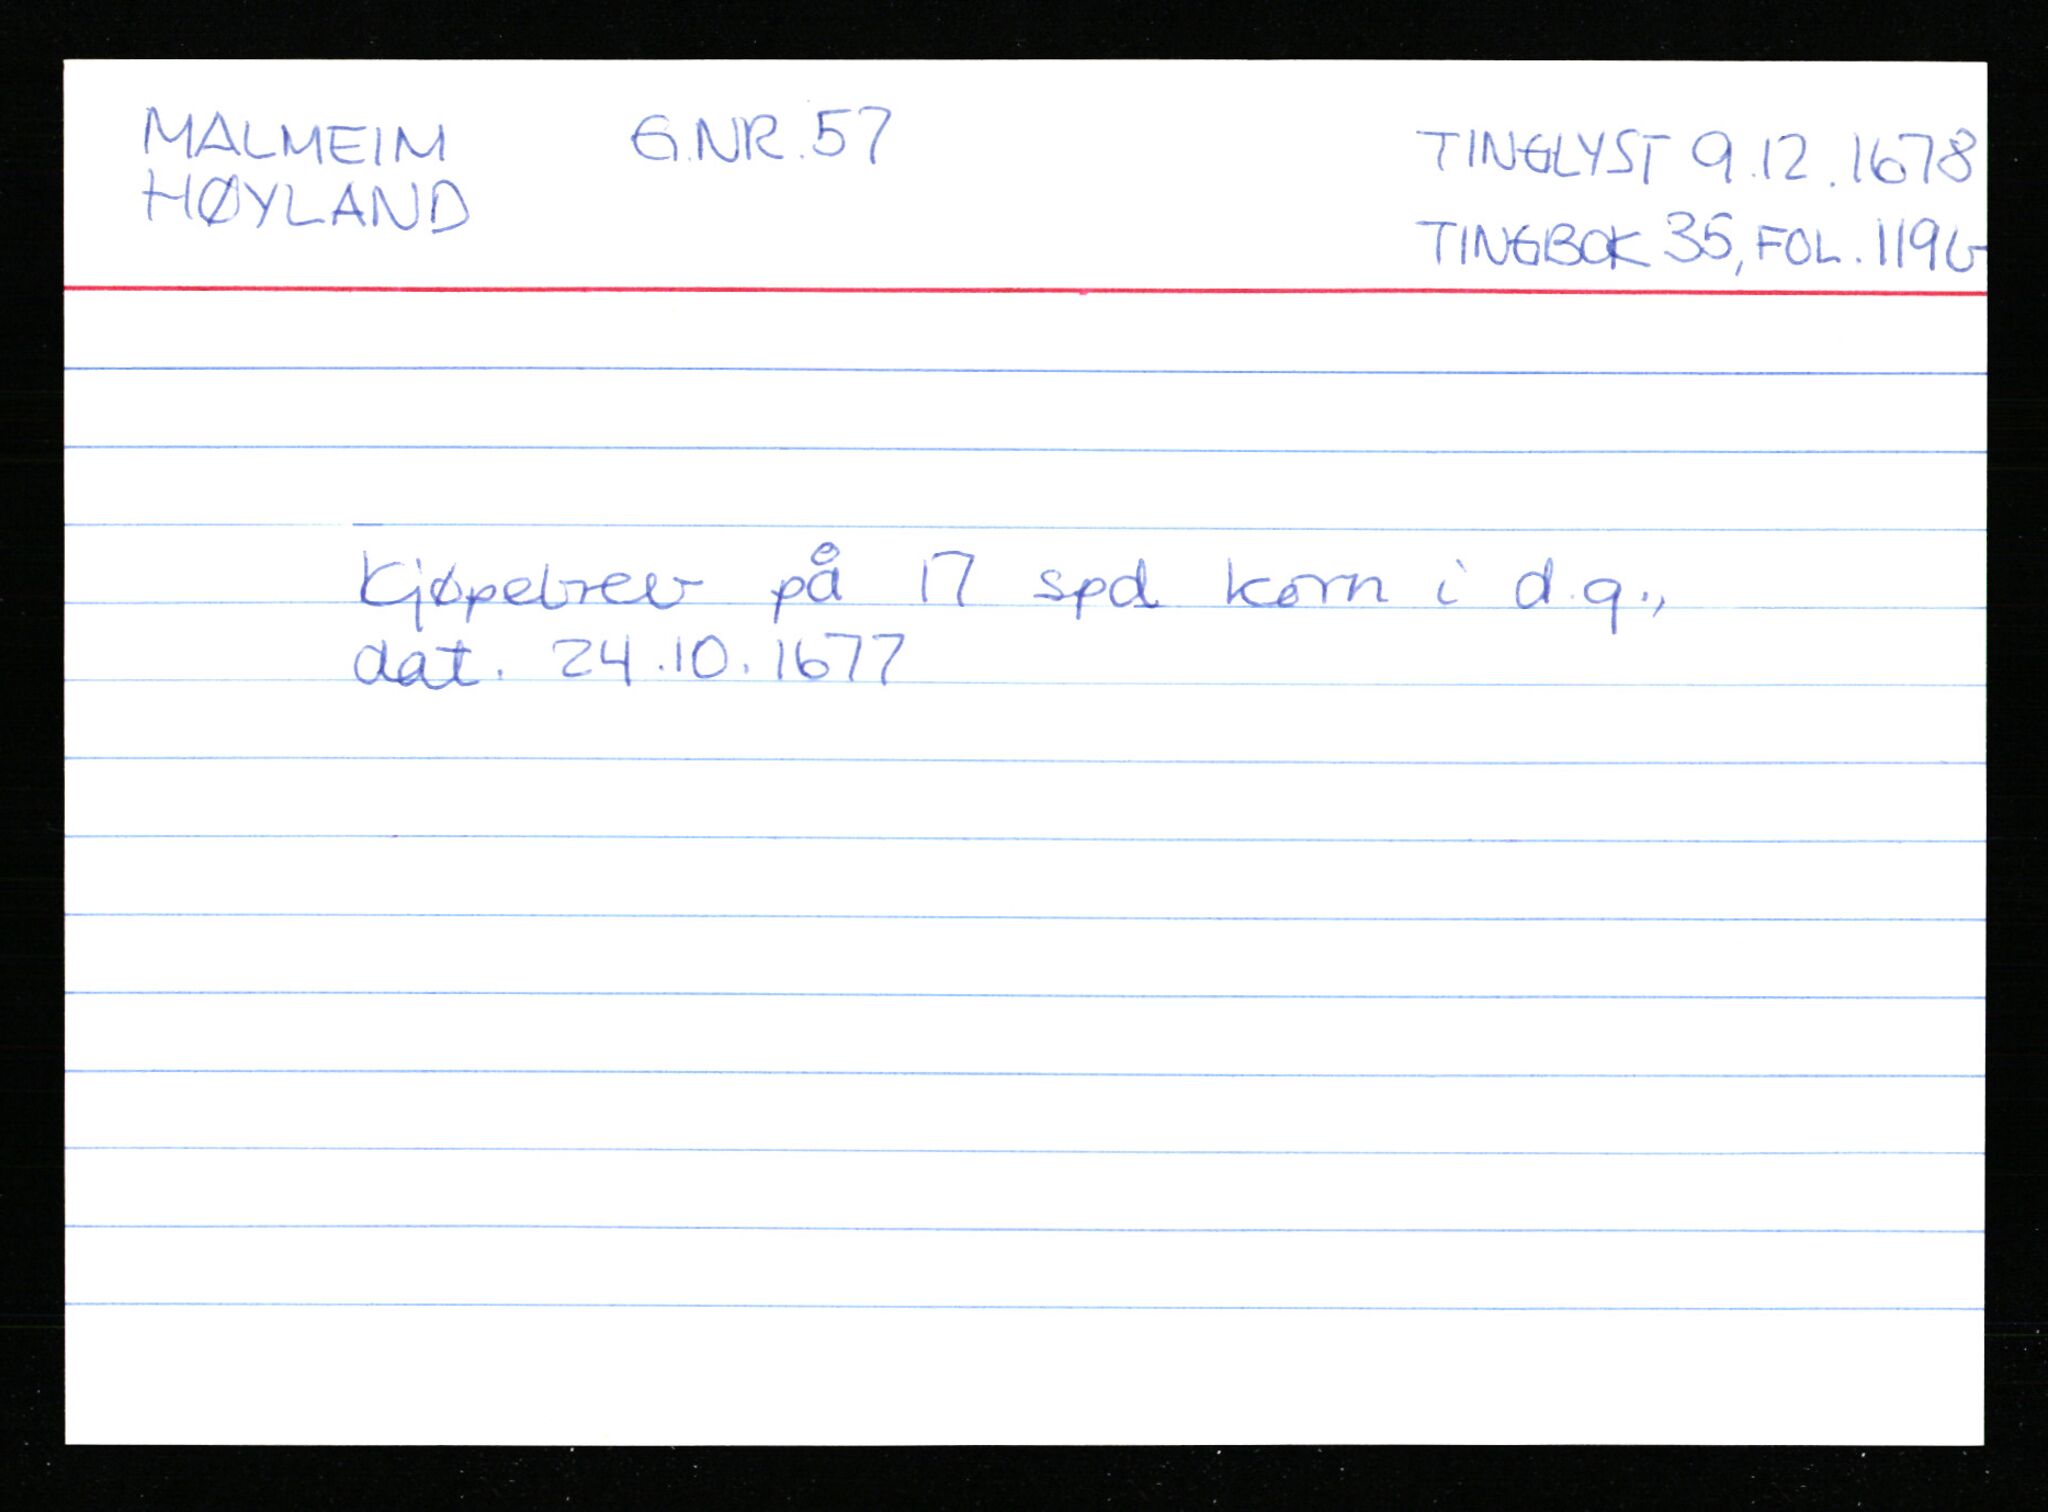 MALMEIM G.NR. 57 TINGLYST 9.12.1678
HØYLAND TINGBOK 35, FOL. 119b
Kjøpebrev på 17 spd korn i d.g.,
dat. 24.10.1677